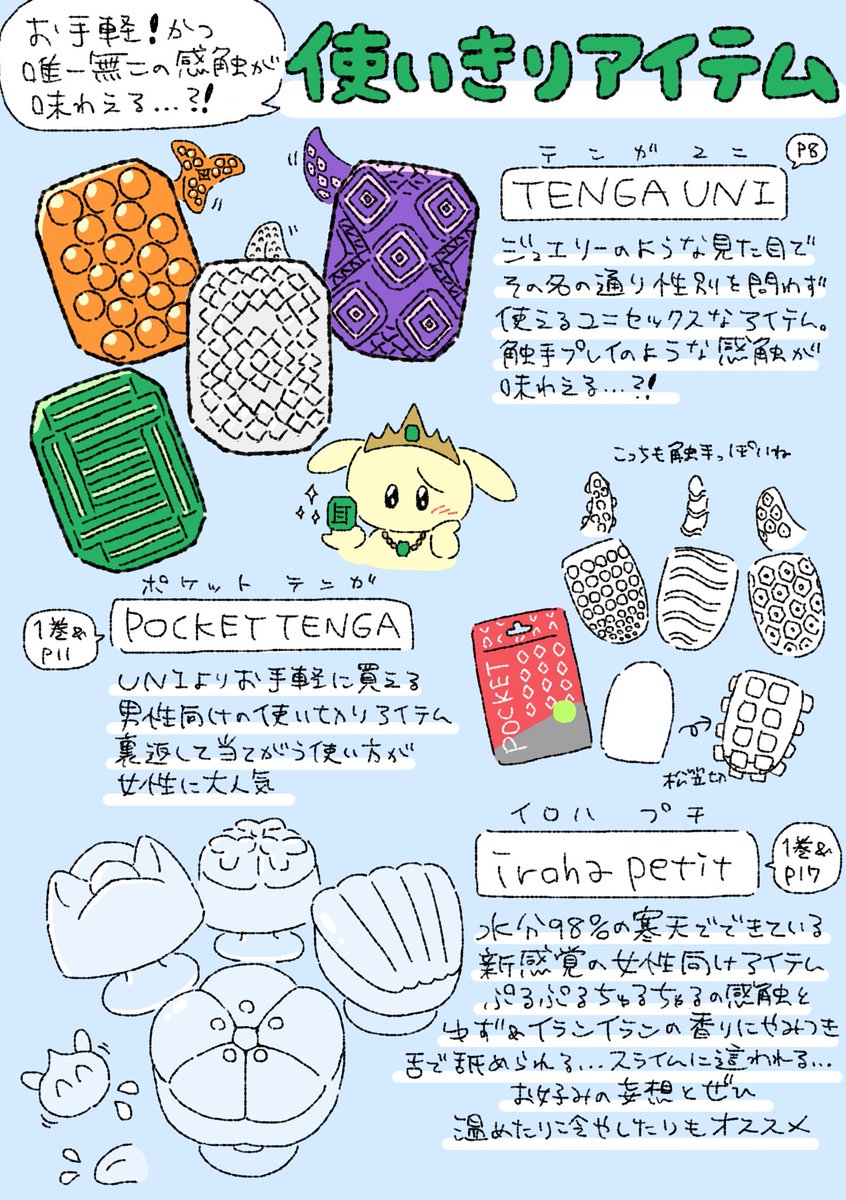 お手軽!かつ
唯一無二の感触が
味わえる…?!
使いきりアイテム
テンガユニ
TENGA UNI
P8
ジュエリーのような見た目で
その名の通り性別を問わず
使えるユニセックスなアイテム。
触手プレイのような感触が
味わえる…?!
こっちも触手っぽいね
ポケット テンガ
POCKET TENGA
1巻&
P11
UNIよりお手軽に買える
男性向けの使いきりアイテム
裏返して当てがう使い方が
女性に大人気
POCKET
松笠切
イロハ プチ
iroha petit
1巻&
P17
水分98%の寒天でできている
新感覚の女性向けアイテム
ぷるぷるちゅるちゅるの感触と
ゆず&イランイランの香りにやみつき
舌で舐められる…スライムに這われる…
お好みの妄想とぜひ
温めたり冷やしたりもオススメ